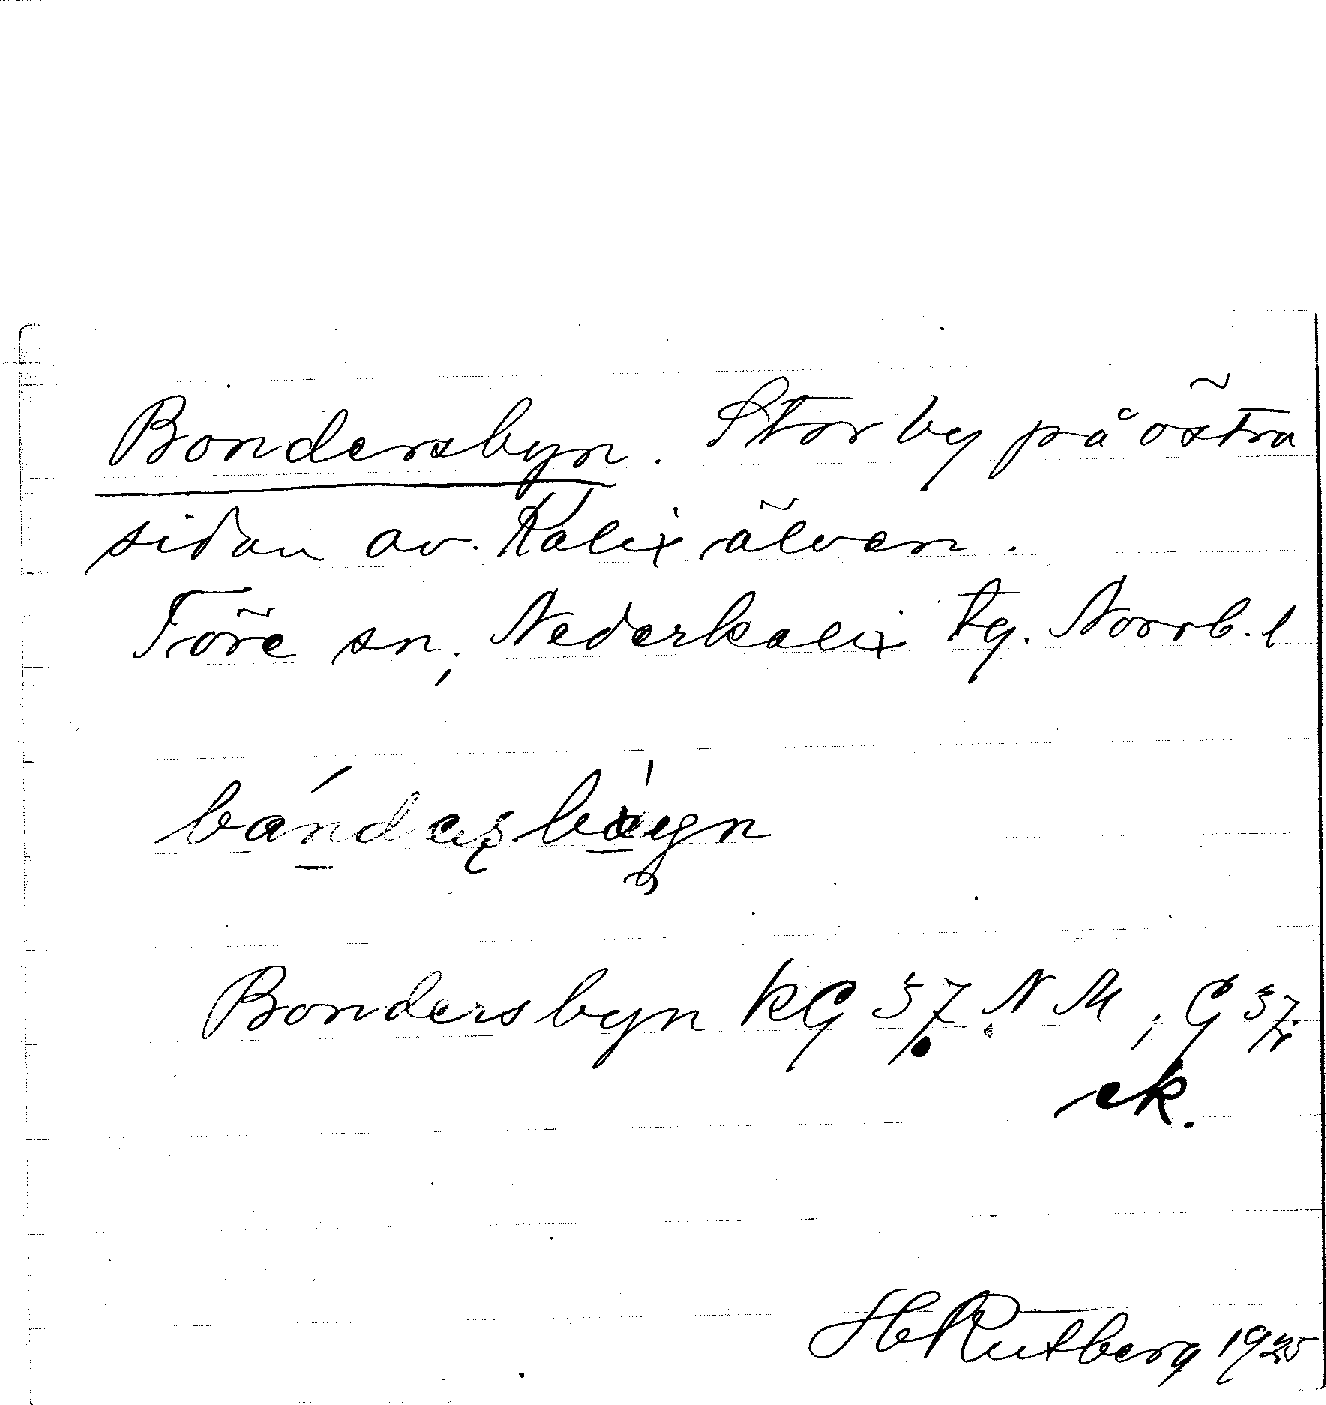 Bondersbyn. Stor by på östra
sidan av Kalix älven.
Töre sn, Nederkalix tg. Norrb. l
Bondersbyn KG 57 NM, G 57
ek.
H Rutberg 1925